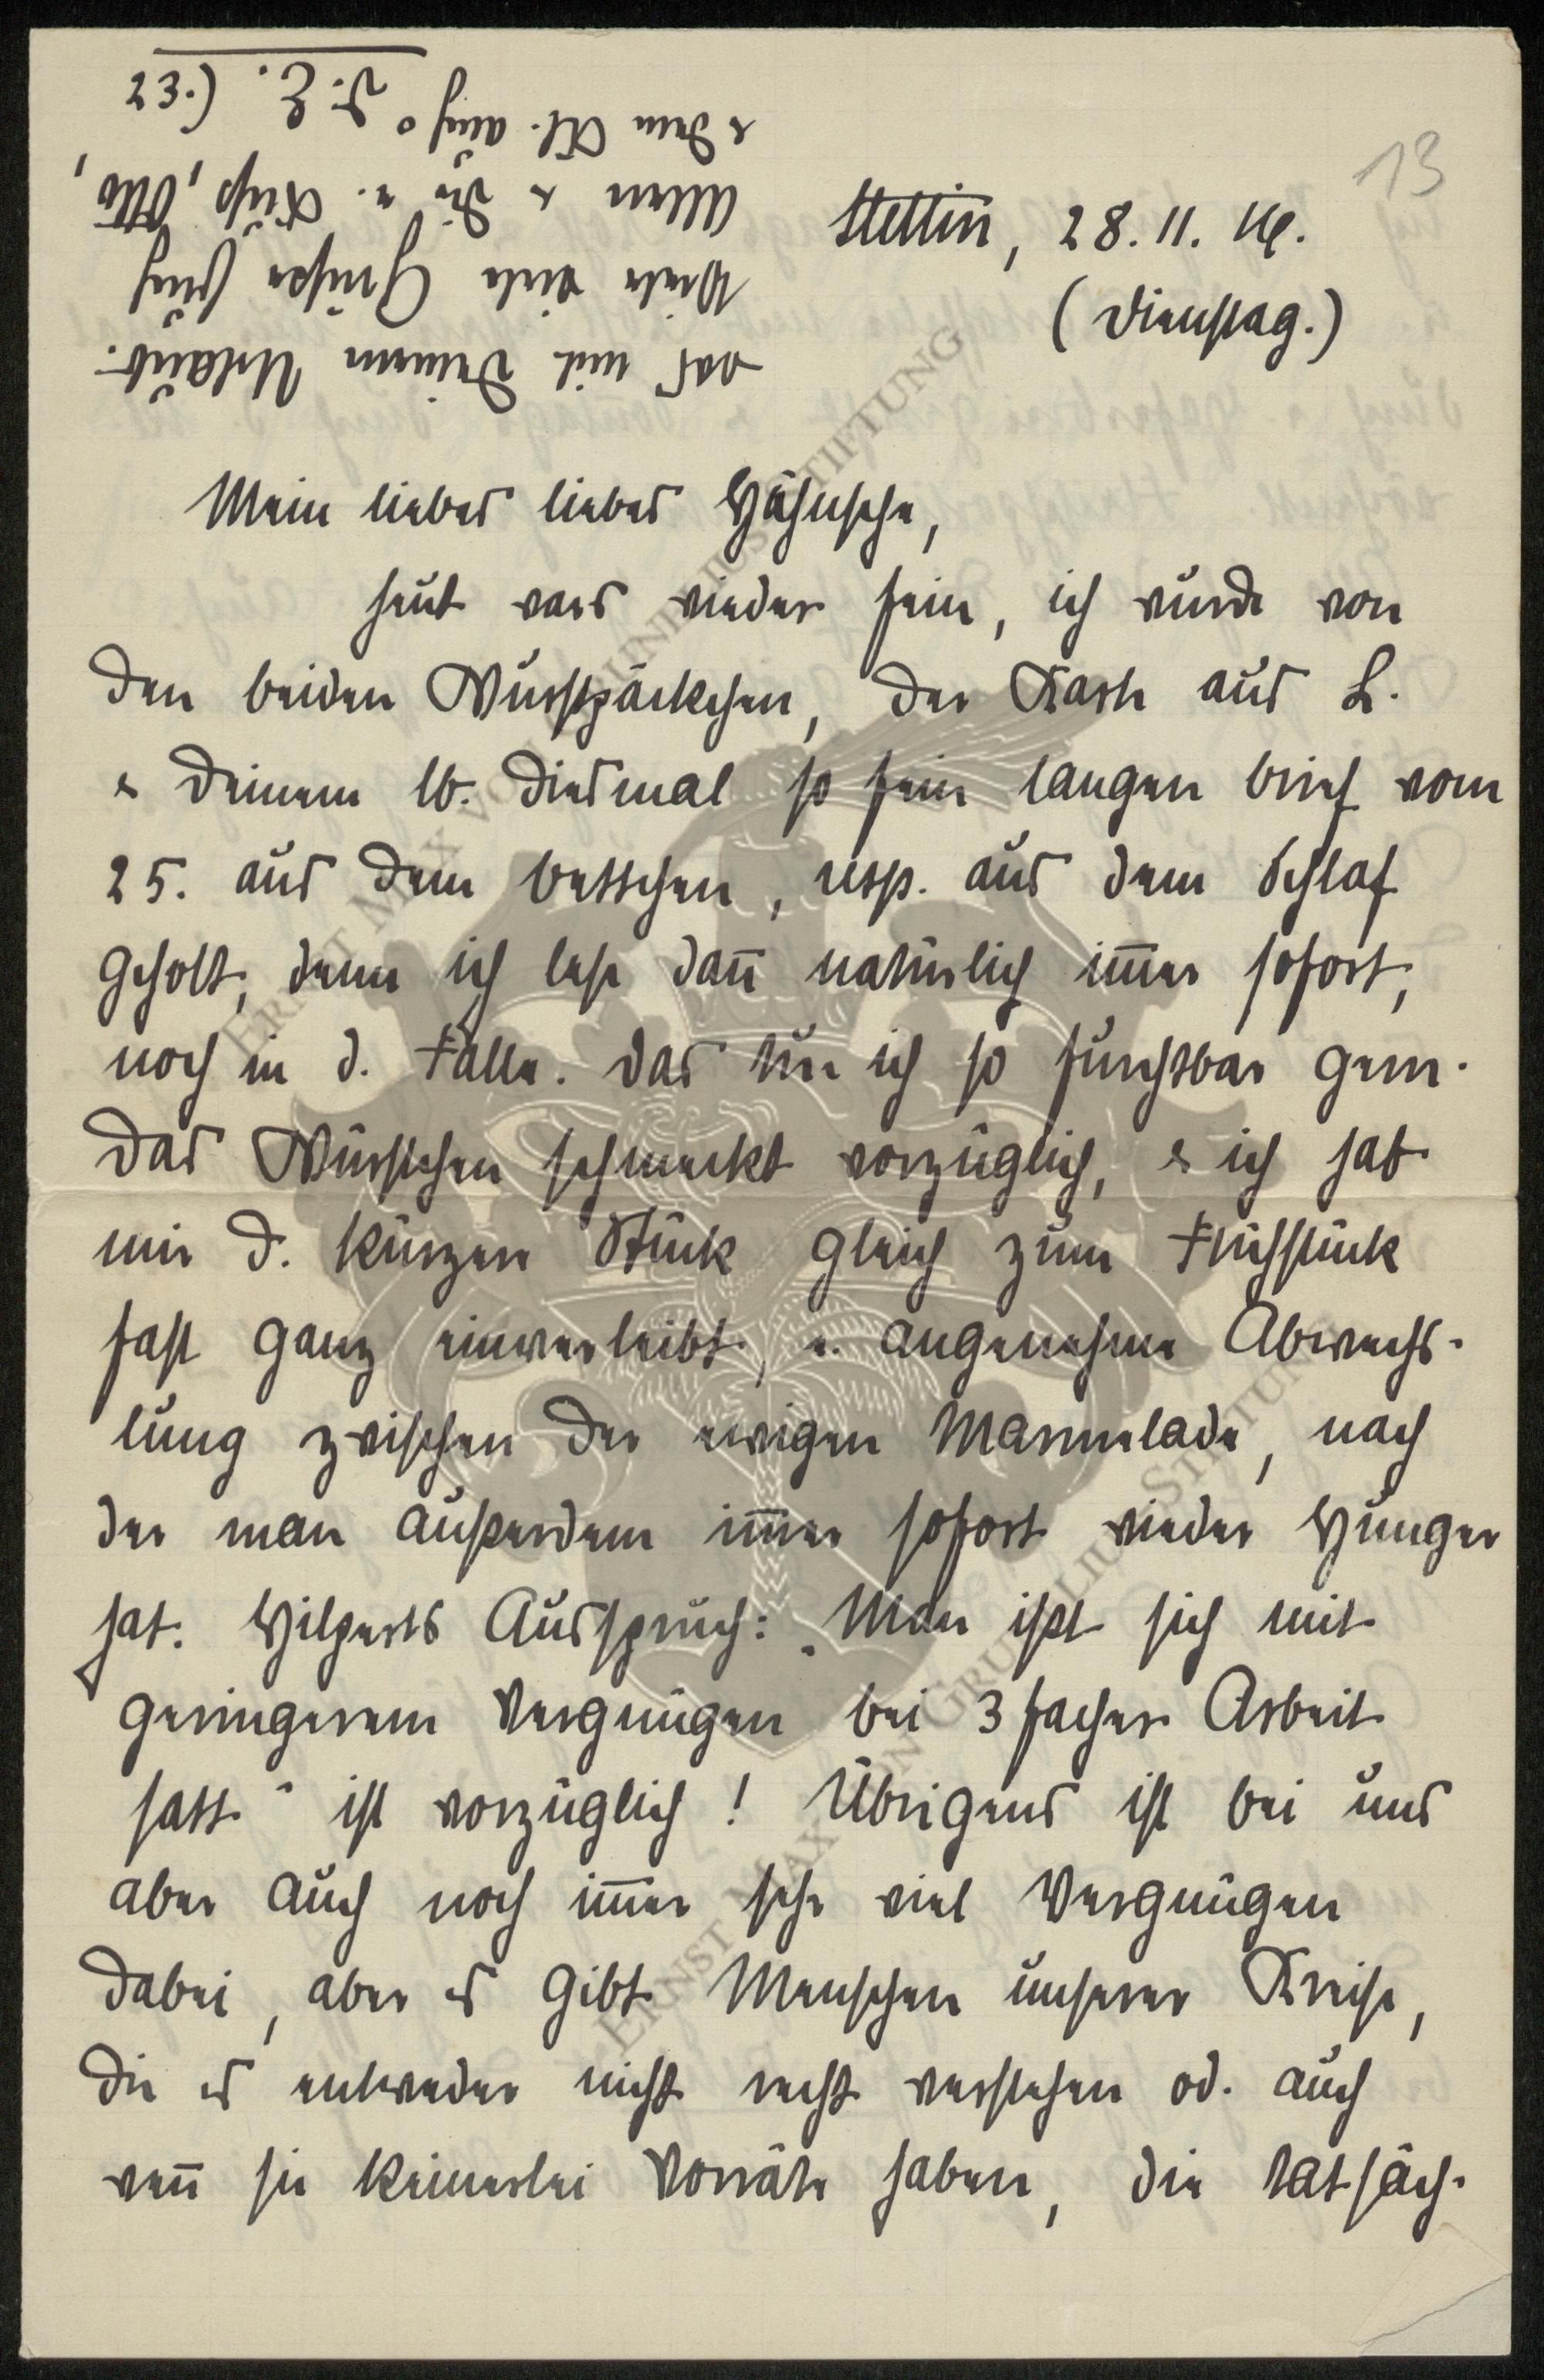 13
Stettin, 28. 11. 16.
(Dienstag.)
Mein liebes liebes Hähnsche,
heut wars wieder fein, ich wurde von
den beiden Wurstpäckchen, der Karte aus L.
& Deinem lb. diesmal so fein langen Brief vom
25. aus dem Bettchen, resp. aus dem Schlaf
geholt, denn ich lese dan̄ natürlich im̄er sofort,
noch in d. Falle. Das tue ich so furchtbar gern.
Das Würstchen schmeckt vorzüglich, & ich hab
mir d. kürzere Stück gleich zum Frühstück
fast ganz einverleibt, e. angenehme Abwechs-
lung zwischen der ewigen Marmelade, nach
der man außerdem im̄er sofort wieder Hunger
hat. Hilperts Ausspruch: „Man ißt sich mit
geringerem Vergnügen bei 3facher Arbeit
satt" ist vorzüglich! Übrigens ist bei uns
aber auch noch im̄er sehr viel Vergnügen
dabei, aber es gibt Menschen unserer Kreise,
die es entweder nicht recht verstehen od. auch
wen̄ sie keinerlei Vorräte haben, die tatsäch-
das mit Deinem Urlaub.
Viele viele Grüße Euch
Allen & Dir e. Kuß, Otto,
& dem Kl. auch. D. E. (.32
ERNST MAX VON GRUNELIUS-STIFTUNG
ERNST MAX VON GRUNELIUS-STIFTUNG